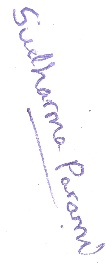 Sudharma Paraml